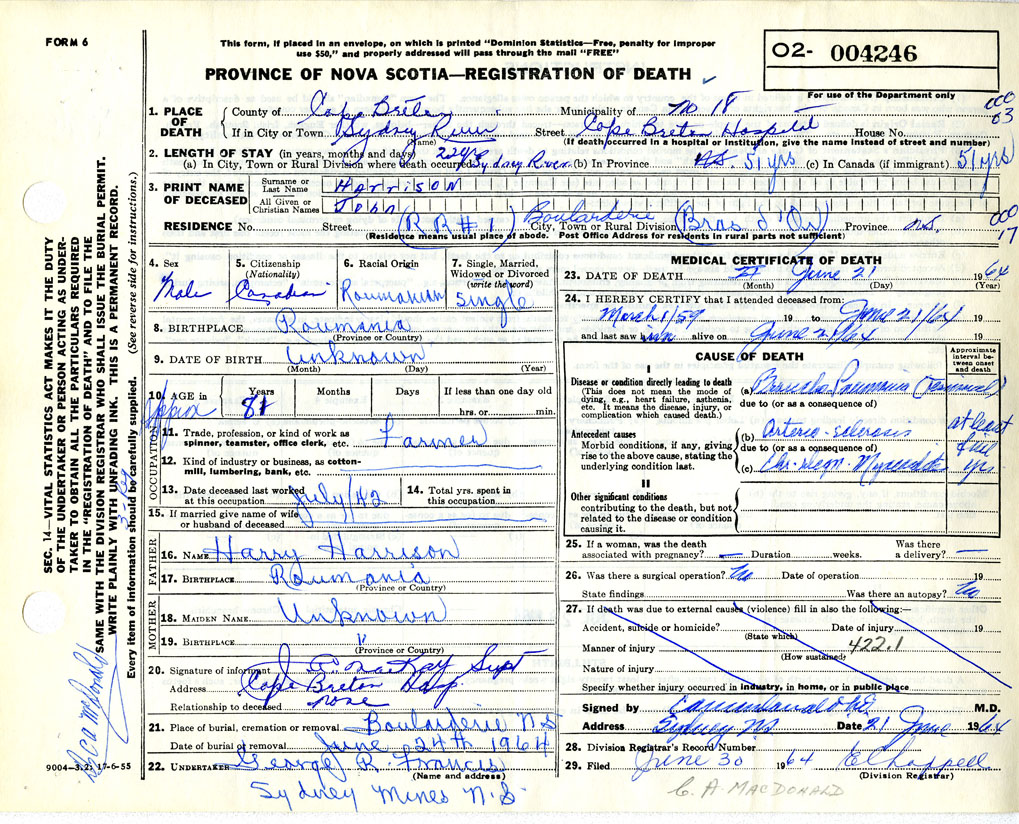 FORM 6
This form, if placed in an envelope, on which is printed "Dominion Statistics—Free, penalty for improper
use $50," and properly addressed will pass through the mail "FREE"
PROVINCE OF NOVA SCOTIA—REGISTRATION OF DEATH
O2- 004246
For use of the Department only
000
03
1. PLACE OF DEATH
County of Cape Breton Municipality of No 18
If in City or Town Sydney River Street Cape Breton Hospital House No.
(Name) (If death occurred in a hospital or institution, give the name instead of street and number)
2. LENGTH OF STAY (in years, months and days)
(a) In City, Town or Rural Division where death occurred 22 yrs Sydney River (b) In Province NS. 51 yrs (c) In Canada (if immigrant) 51 yrs
3. PRINT NAME OF DECEASED
Surname or Last Name Harrison
All Given or Christian Names John
000
17
RESIDENCE No. Street (RR# 1) Boularderie City, Town or Rural Division (Bras d'Or) Province N.S.
(Residence means usual place of abode. Post Office Address for residents in rural parts not sufficient)
4. Sex
Male
5. Citizenship
(Nationality)
Canadian
6. Racial Origin
Roumanian
7. Single, Married,
Widowed or Divorced
(write the word)
Single
8. BIRTHPLACE Roumania
(Province or Country)
9. DATE OF BIRTH Unknown
(Month) (Day) (Year)
10. AGE in Years Months Days If less than one day old
Approx 81 hrs. or min.
OCCUPATION
11. Trade, profession, or kind of work as
spinner, teamster, office clerk, etc. Farmer
12. Kind of industry or business, as cotton-
mill, lumbering, bank, etc.
13. Date deceased last worked
at this occupation July/42
14. Total yrs. spent in
this occupation
15. If married give name of wife
or husband of deceased
FATHER
16. NAME Harry Harrison
17. BIRTHPLACE Roumania
(Province or Country)
MOTHER
18. MAIDEN NAME Unknown
19. BIRTHPLACE "
(Province or Country)
20. Signature of informant MacKay Supt
Address Cape Breton Hosp.
Relationship to deceased none
21. Place of burial, cremation or removal Boularderie N.S
Date of burial or removal June 24th 1964
22. UNDERTAKER George R. Francis
(Name and address)
Sydney Mines N.S.
MEDICAL CERTIFICATE OF DEATH
23. DATE OF DEATH June 21 1964
(Month) (Day) (Year)
24. I HEREBY CERTIFY that I attended deceased from:
March 1/59 19 to June 21/64 19
and last saw him alive on June 21/64 19
CAUSE OF DEATH
Approximate
interval be-
tween onset
and death
I
Disease or condition directly leading to death
(This does not mean the mode of
dying, e.g., heart failure, asthenia,
etc. It means the disease, injury, or
complication which caused death.)
(a) Broncho Pneumonia (Terminal)
due to (or as a consequence of)
Antecedent causes
Morbid conditions, if any, giving
rise to the above cause, stating the
underlying condition last.
(b) Arterio-sclerosis at least
due to (or as a consequence of) five
(c) Chr. Degn. Myocarditis yrs
II
Other significant conditions
contributing to the death, but not
related to the disease or condition
causing it.
25. If a woman, was the death
associated with pregnancy? — Duration weeks.
Was there
a delivery? —
26. Was there a surgical operation? No Date of operation 19
State findings Was there an autopsy? No
27. If death was due to external causes (violence) fill in also the following:—
Accident, suicide or homicide? Date of injury 19
(State which)
Manner of injury 422.1
(How sustained)
Nature of injury
Specify whether injury occurred in industry, in home, or in public place
Signed by M.D.
Address Sydney NS. Date 21 June 1964
28. Division Registrar's Record Number
29. Filed June 30 1964 E Chappell
(Division Registrar)
C. A. MACDONALD
SEC. 14—VITAL STATISTICS ACT MAKES IT THE DUTY
OF THE UNDERTAKER OR PERSON ACTING AS UNDER-
TAKER TO OBTAIN ALL THE PARTICULARS REQUIRED
IN THE "REGISTRATION OF DEATH" AND TO FILE THE
SAME WITH THE DIVISION REGISTRAR WHO SHALL ISSUE THE BURIAL PERMIT.
WRITE PLAINLY WITH UNFADING INK. THIS IS A PERMANENT RECORD.
Every item of information should be carefully supplied. (See reverse side for instructions.)
9004—3.2: 17-6-55